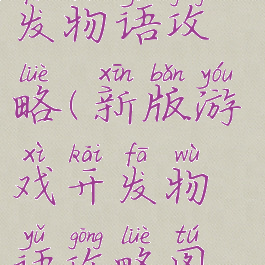 发物语攻
lüè xīn bǎn yóu
略(新版游
xì kāi fā wù
戏开发物
yǔ gōng lüè tú
语攻略图